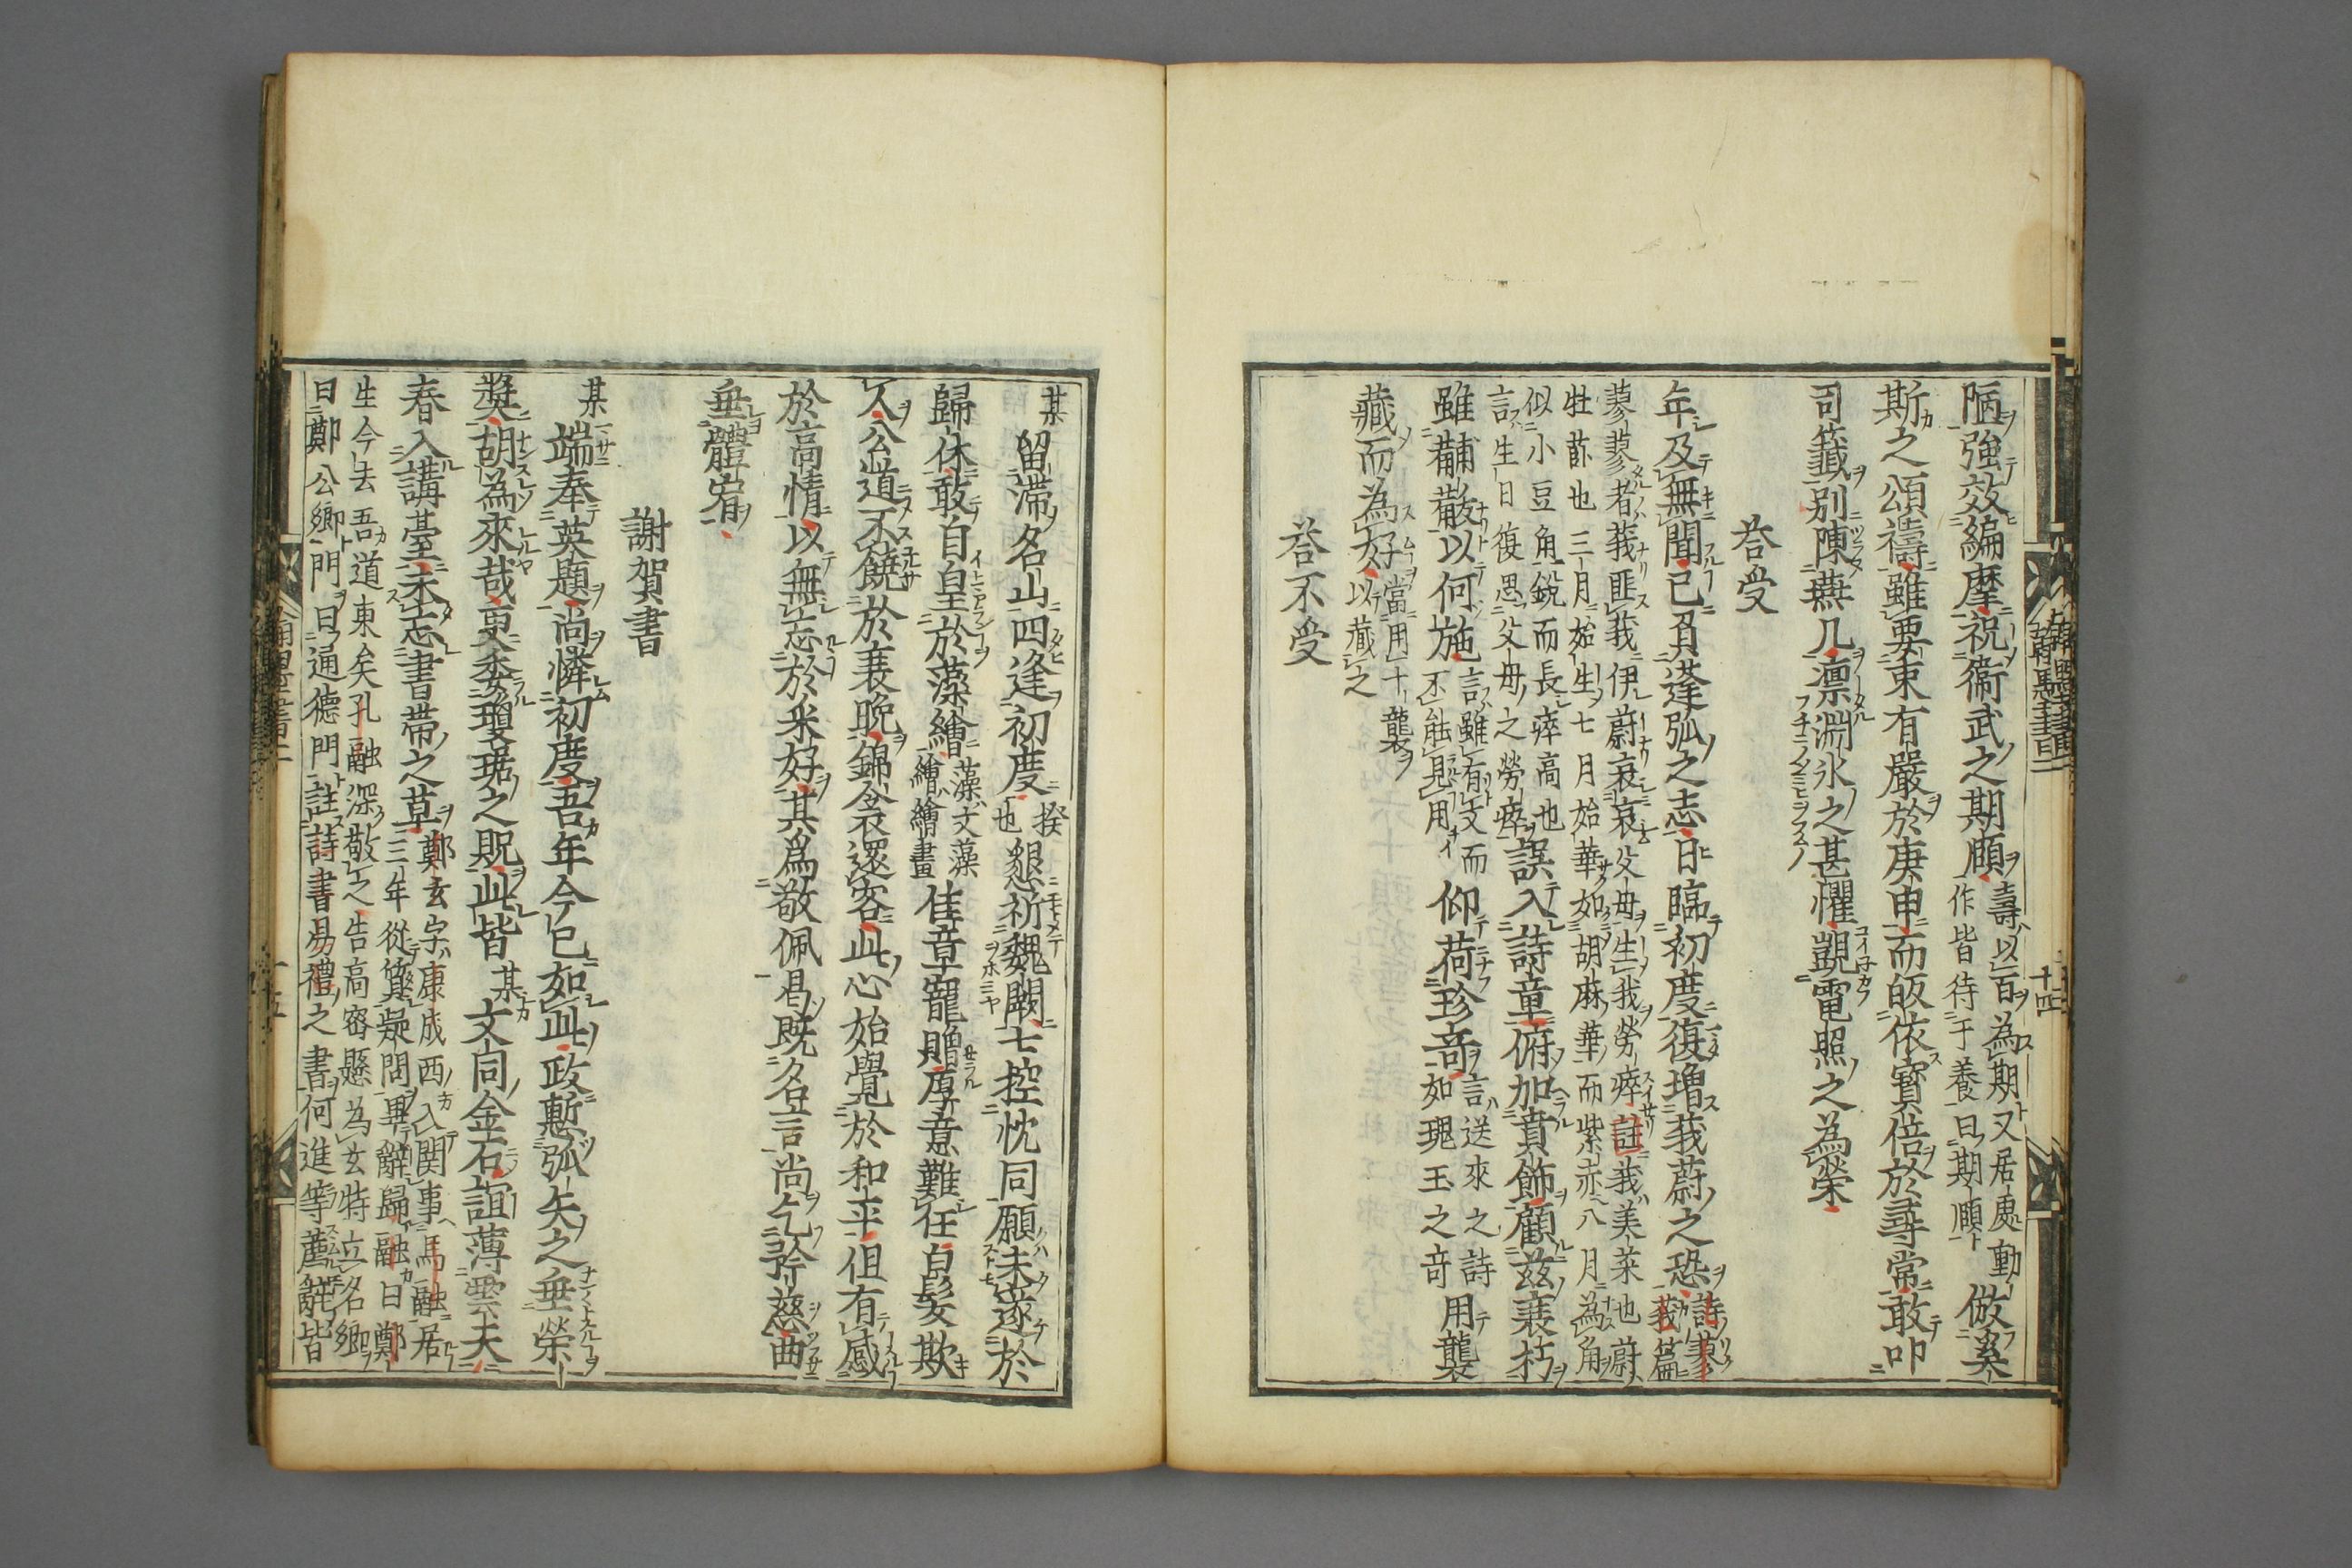 陋強效編摩祝衞武之期頤壽以百為期又居處動作皆待于養曰期頤倣奚
斯之頌禱雖要束有嚴於庚申而皈依寔倍於尋常敢叩
司籤别陳燕几凛淵氷之甚懼覬電照之為榮
荅受
年及無聞已負蓬弧之志日臨初度復増莪蔚之恐詩蓼莪篇
蓼蓼者莪匪莪伊蔚哀哀父母生我勞瘁註莪美菜也蔚
牡菣也三月始生七月始華如胡麻華而紫赤八月為角
似小豆角銳而長瘁高也
言生日復思父母之勞瘁誤入詩童俯加賁飾顧兹衰朽
雖黼黻以何施言雖有文而不能見用仰荷珍竒言送來之詩如瑰玉之竒用襲
藏而為好當用十襲以藏之
荅不受
某留滞名山四逢初度揆也懇祈魏闕七控忱同願未遂於
歸休敢自皇於藻繪藻文藻繪繪畫佳章寵贈厚意難任白髮欺
人公道不饒於衰晩錦衾還客此心始覺於和平但有感
於高情以無忘於釆好其為敬佩曷既名言尚乞矜慈曲
垂體宥
謝賀書
某端奉英題尚憐初度吾年今已如此政慙弧矢之垂榮
奬胡為來哉更委瓊琚之貺此皆某文同金石誼薄雲天
春入講臺未忘書帶之草鄭玄字康成西入関事馬融居三年從質疑問畢辭歸融曰鄭
生今去吾道東矣孔融深敬之告高密懸為玄特立名鄉
曰鄭公鄉門曰通德門註詩書易禮之書何進等薦辭皆